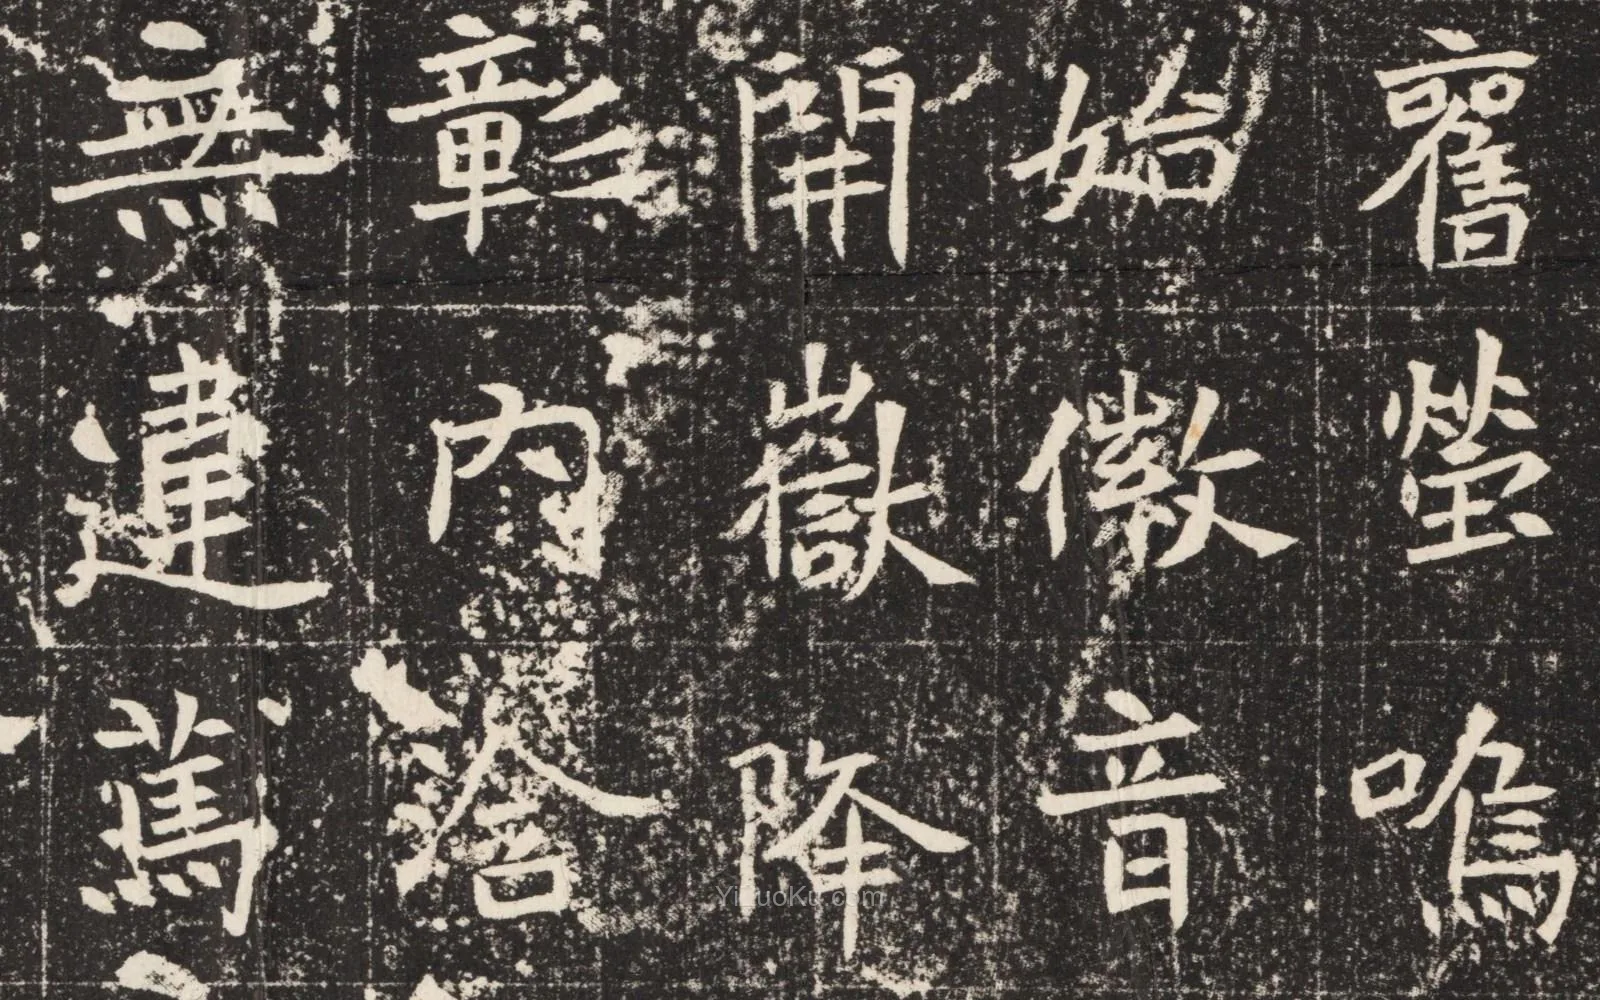 舊塋嗚
始徽音
開嶽降
彰內含
無違蔫
YiZuoKu.com